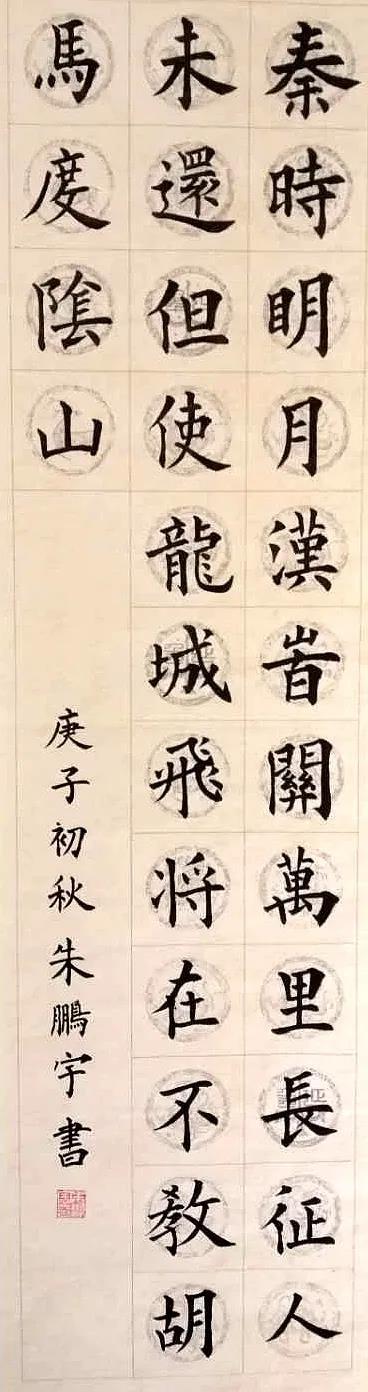 秦時明月漢峕關萬里長征人
未還但使龍城飛将在不教胡
馬度陰山
庚子初秋朱鵬宇書